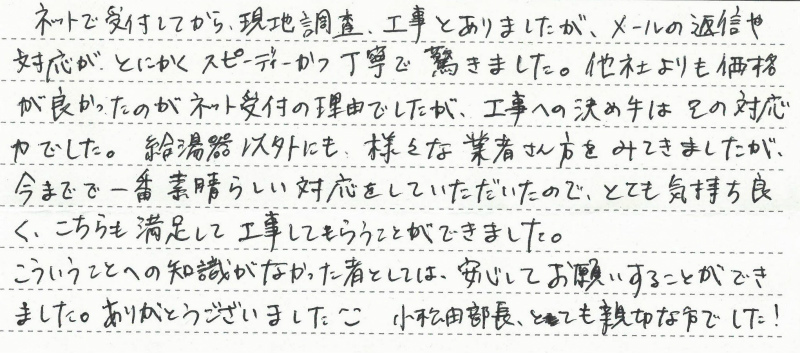 ネットで受付してから、現地調査、工事とありましたが、メールの返信や
対応が、とにかくスピーディーかつ丁寧で驚きました。他社よりも価格
が良かったのがネット受付の理由でしたが、工事への決め手はその対応
力でした。給湯器以外にも、様々な業者さん方をみてきましたが、
今までで一番素晴らしい対応をしていただいたので、とても気持ち良
く、こちらも満足して工事してもらうことができました。
こういうことへの知識がなかった者としては、安心してお願いすることができ
ました。ありがとうございました 小松田部長、とても親切な方でした!